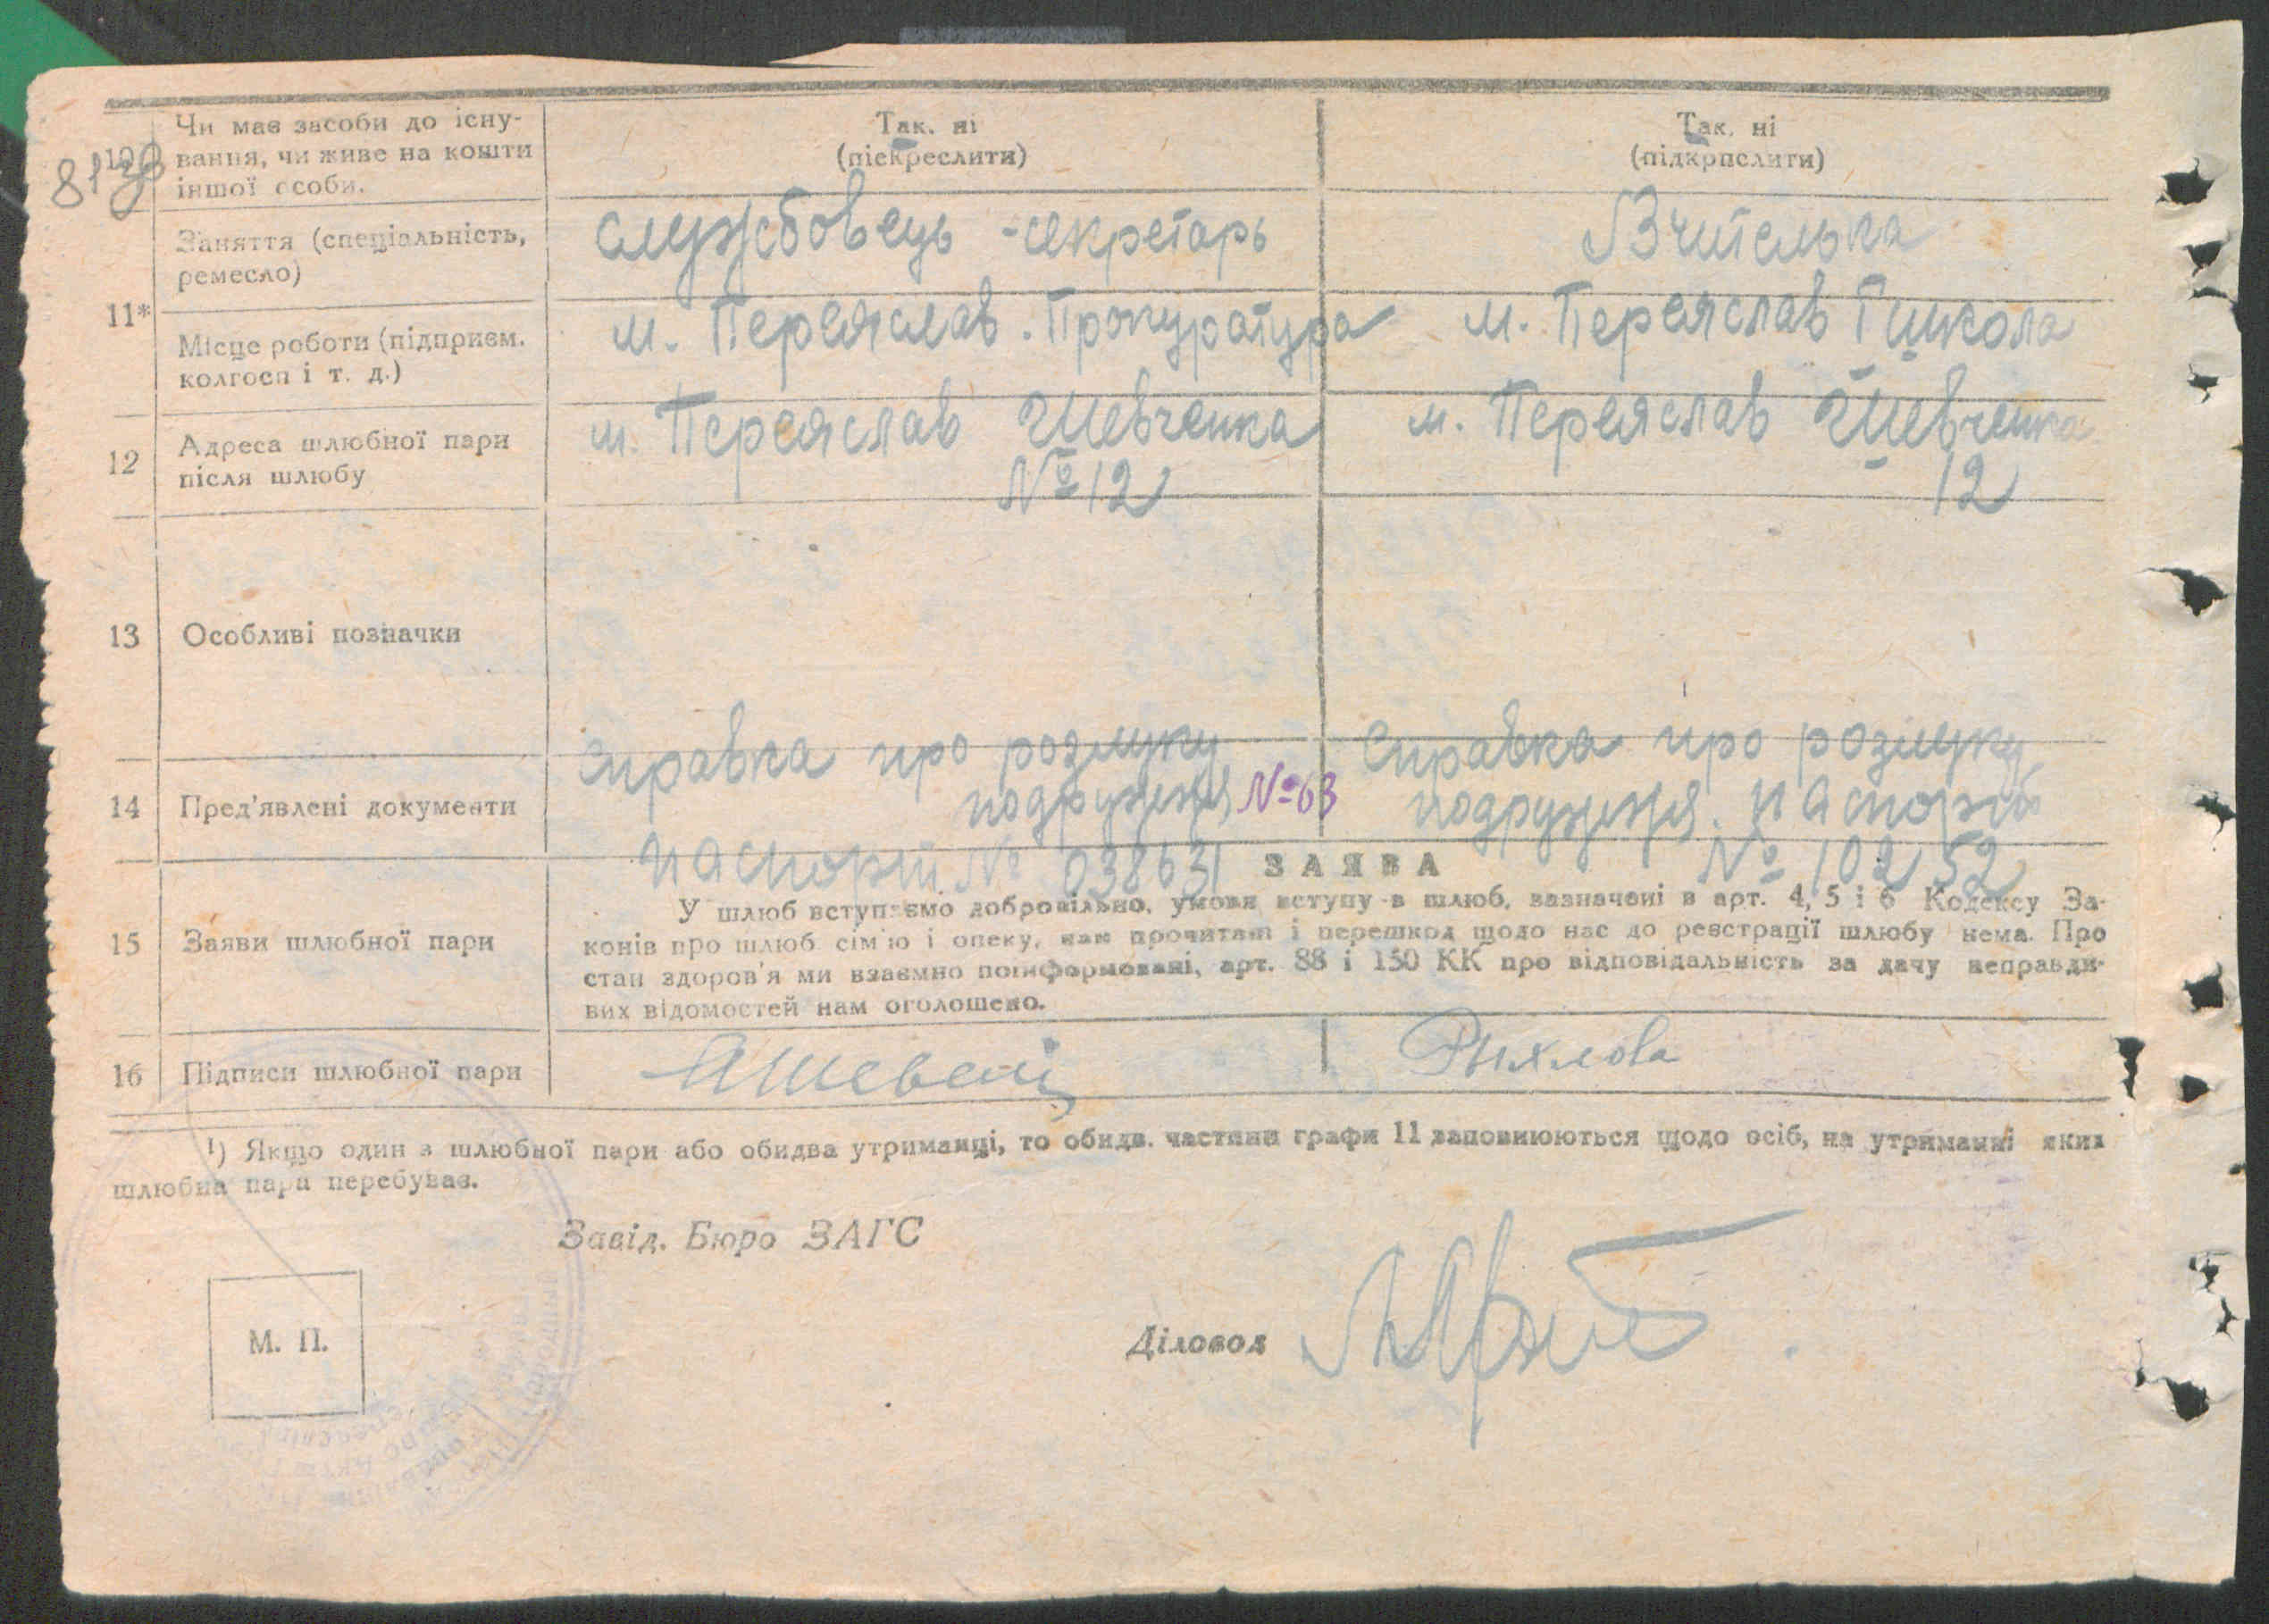 Чи має засоби до існу-
вання, чи живе на кошти
іншої особи.
Так. ні
(піекреслити)
Так. ні
(підкрпслити)
81
Заняття (спеціальність,
ремесло)
службовець - секретарь
Вчителька
11*
Місце роботи (підприєм.
колгосп і т. д.)
м. Переяслав. Прокуратура
м. Переяслав Г школа
12
Адреса шлюбної пари
після шлюбу
м. Переяслав Шевченка
№ 12
м. Переяслав Шевченка
12
13
Особливі позначки
14
Пред'явлені документи
справка про розлуку
подружжя №63
паспорт № 038631
Справка про розлуку
подружжя. паспорт
№ 102152
15
Заяви шлюбної пари
ЗАЯВА
У шлюб вступаємо добровільно, умови вступу в шлюб, зазначені в арт. 4, 5 і 6 Кодексу За-
конів про шлюб сім'ю і опеку, нам прочитані і перешкод щодо нас до реєстрації шлюбу нема. Про
стан здоров'я ми взаємно поінформовані, арт. 88 і 150 КК про відповідальність за дачу неправди-
вих відомостей нам оголошено.
16
Підписи шлюбної пари
Рыхлова
¹) Якщо один з шлюбної пари або обидва утриманці, то обидв. частини графи 11 заповнюються щодо осіб, на утриманні яких
шлюбна пара перебуває.
Завід. Бюро ЗАГС
М. П.
Діловод